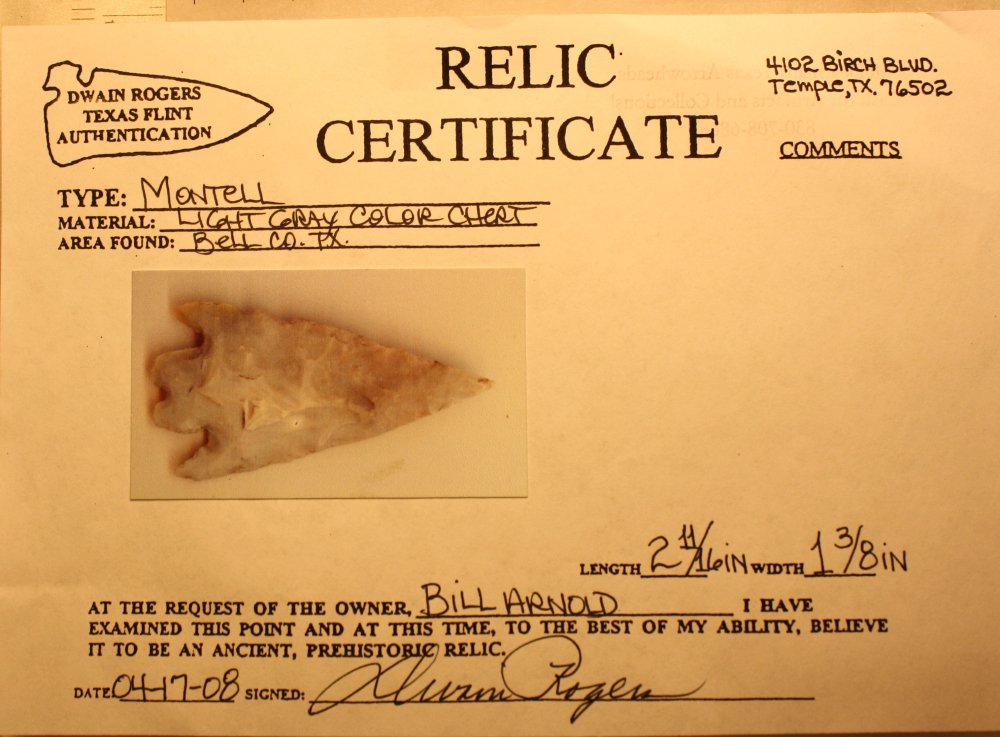 DWAIN ROGERS
TEXAS FLINT
AUTHENTICATION
RELIC
CERTIFICATE
4102 BIRCH BLVD.
Temple, TX. 76502
COMMENTS
TYPE: MONTELL
MATERIAL: LIGHT GRAY COLOR CHERT
AREA FOUND: BELL CO. TX.
LENGTH 2 11/16 IN WIDTH 1 3/8 IN
AT THE REQUEST OF THE OWNER, BILL ARNOLD I HAVE
EXAMINED THIS POINT AND AT THIS TIME, TO THE BEST OF MY ABILITY, BELIEVE
IT TO BE AN ANCIENT, PREHISTORIC RELIC.
DATE 04-17-08 SIGNED: Dwain Rogers